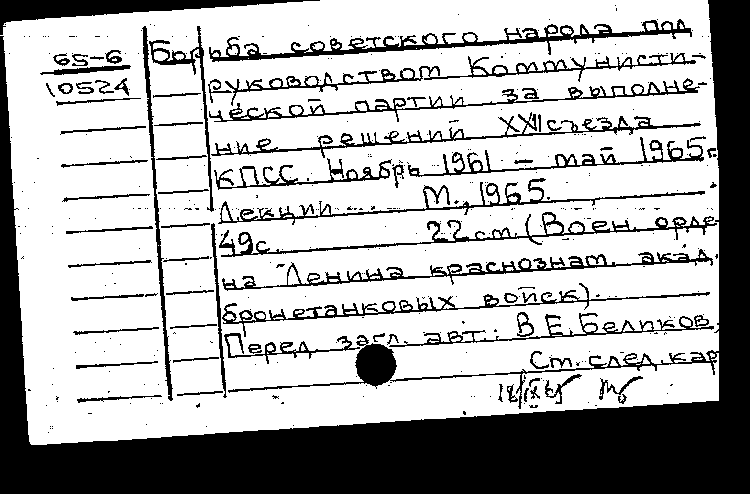 65-6
10524
Борьба советского народа под
руководством Коммунисти-
ческой партии за выполне-
ние решений XXII съезда
КПСС. Ноябрь 1961 – май 1965 г.
Лекции ... М., 1965.
49 с. 22 см. (Воен. орде-
на Ленина краснознам. акад.
бронетанковых войск).
Перед загл. авт.: В.Е. Беликов,
Ст. след. кар